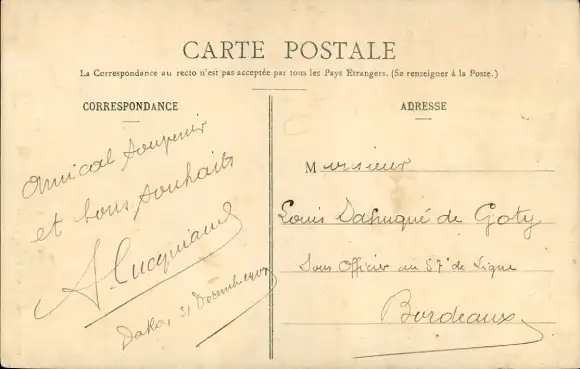 CARTE POSTALE
La Correspondance au recto n'est pas acceptée par tous les Pays Étrangers. (Se renseigner à la Poste.)
CORRESPONDANCE
Amical souvenir
et bons souhaits
31 Décembre
ADRESSE
Monsieur
Louis de Goty
Sous Officier au 57e de Ligne
Bordeaux